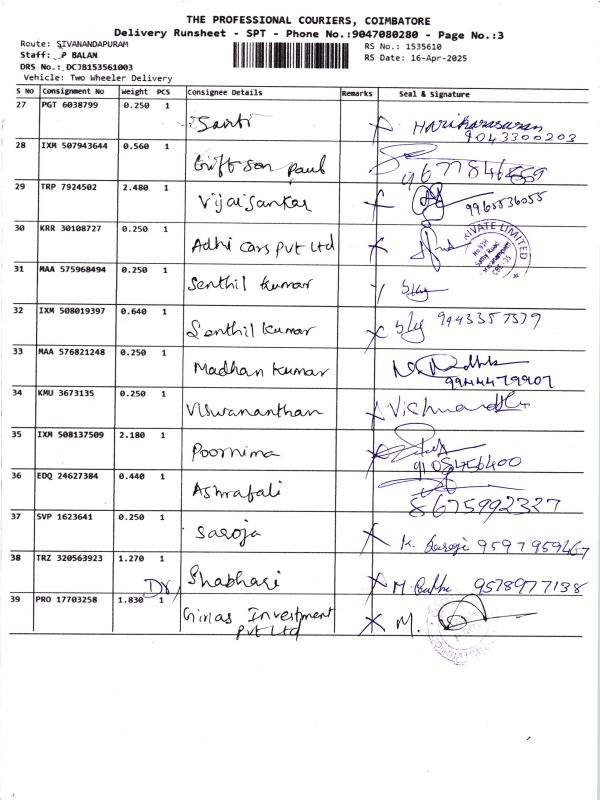 THE PROFESSIONAL COURIERS, COIMBATORE
Delivery Runsheet - SPT - Phone No.:9047080280 - Page No.:3
Route: SIVANANDAPURAM
RS No.: 1535610
Staff: P BALAN
RS Date: 16-Apr-2025
DRS No.: DCJB153561003
Vehicle: Two Wheeler Delivery
S No Consignment No Weight PCS Consignee Details Remarks Seal & Signature
27 PGT 6038799 0.250 1
Harikarasuran
9043300203
28 IXM 507943644 0.560 1
Giftson paul
29 TRP 7924502 2.480 1
Vijaisankar
30 KRR 30108727 0.250 1
Adhi Cars Pvt Ltd
PRIVATE LIMITED
31 MAA 575968494 0.250 1
Senthil kumar
32 IXM 508019397 0.640 1
Senthil kumar 9943357579
33 MAA 576821248 0.250 1
Madhan kumar
9944479907
34 KMU 3673135 0.250 1
Viswananthan
35 IXM 508137509 2.180 1
Poornima
9105456400
36 EDQ 24627384 0.440 1
Ashrafali
8675992327
37 SVP 1623641 0.250 1
Saroja K. Saroji 9597959467
38 TRZ 320563923 1.270 1
Shabhari 9578977138
39 PRO 17703258 1.830 1
Investment M.
Pvt Ltd